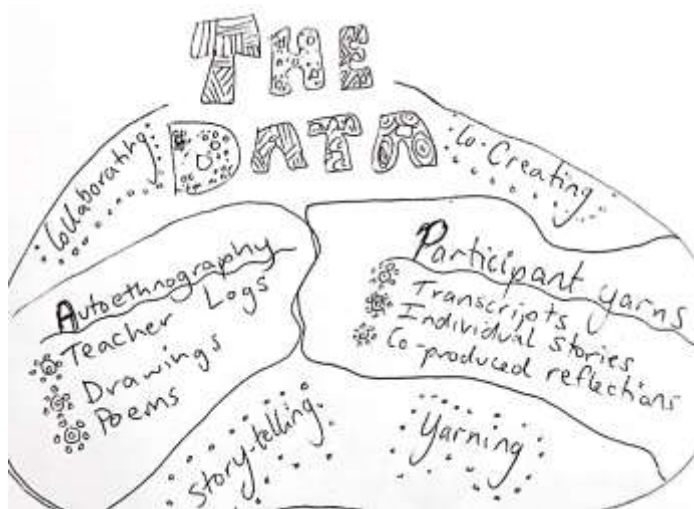 THE
DATA
Collaborating
Co-Creating
Autoethnography
Teacher Logs
Drawings
Poems
Participant yarns
Transcripts
Individual Stories
Co-produced reflections
Story-telling
Yarning